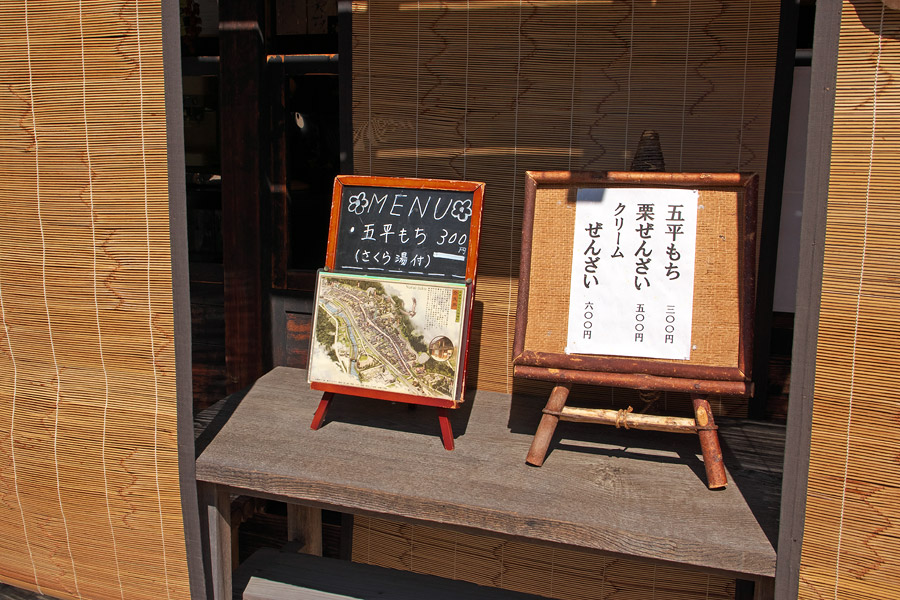 MENU
・五平もち 300円
(さくら湯付)
五平もち 三〇〇円
栗ぜんざい 五〇〇円
クリーム
ぜんざい 六〇〇円